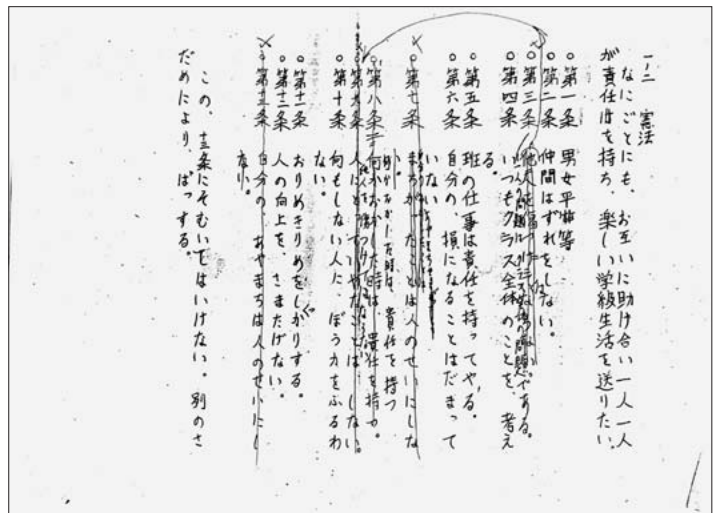 一の二 憲法
なにごとにも、お互いに助け合い一人一人
が責任を持ち、楽しい学級生活を送りたい。
○第一条 男女平等
○第二条 仲間はずれをしない。
○第三条
である。
○第四条 いつもクラス全体のことを、考え
る。
○第五条 班の仕事は責任を持ってやる。
○第六条 自分の、損になることはだまって
いない
○第七条 まちがったことは人のせいにしな
い。
責任を持つ
○第八条 何かおかした時は、責任を持つ。
○第九条 人にとっていやなことは、しない。
○第十条 何もしない人に、ぼう力をふるわ
ない。
○第十一条 おりめきりめをしっかりする。
○第十二条 人の向上を、さまたげない。
○第十三条 自分の、あやまちは人のせいにし
ない。
この、十三条にそむいてはいけない。別のさ
だめにより、ばっする。